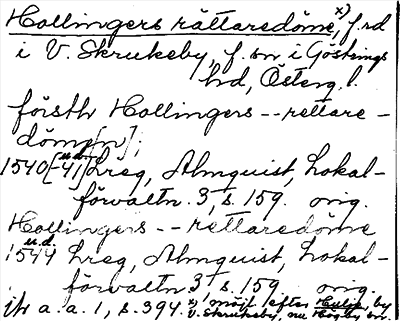 Hollingers rättaredöme, x) f. rd
i V. Skrukeby, f. sn i Göstrings
hd, Österg. l.
försth Hollingers -- rettare-
döm[n];
1540[-41] u.d. Lreg, Almquist, Lokal-
förvaltn. 3, s. 159. orig.
Hollingers -- rettaredöme
1544 u.d. Lreg, Almquist, Lokal-
förvaltn 3, s. 159 orig.
jfr a. a. 1, s. 394. x) möjl. efter Hulje, by
V. Skrukeby, nu Högby sn.